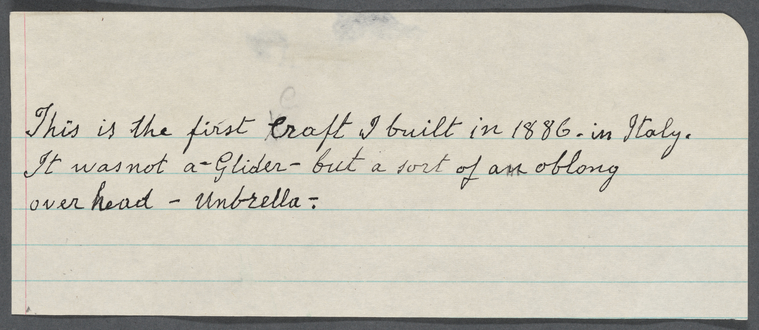 This is the first Craft I built in 1886 - in Italy.
It was not a - Glider - but a sort of an oblong
over head - Unbrella -.